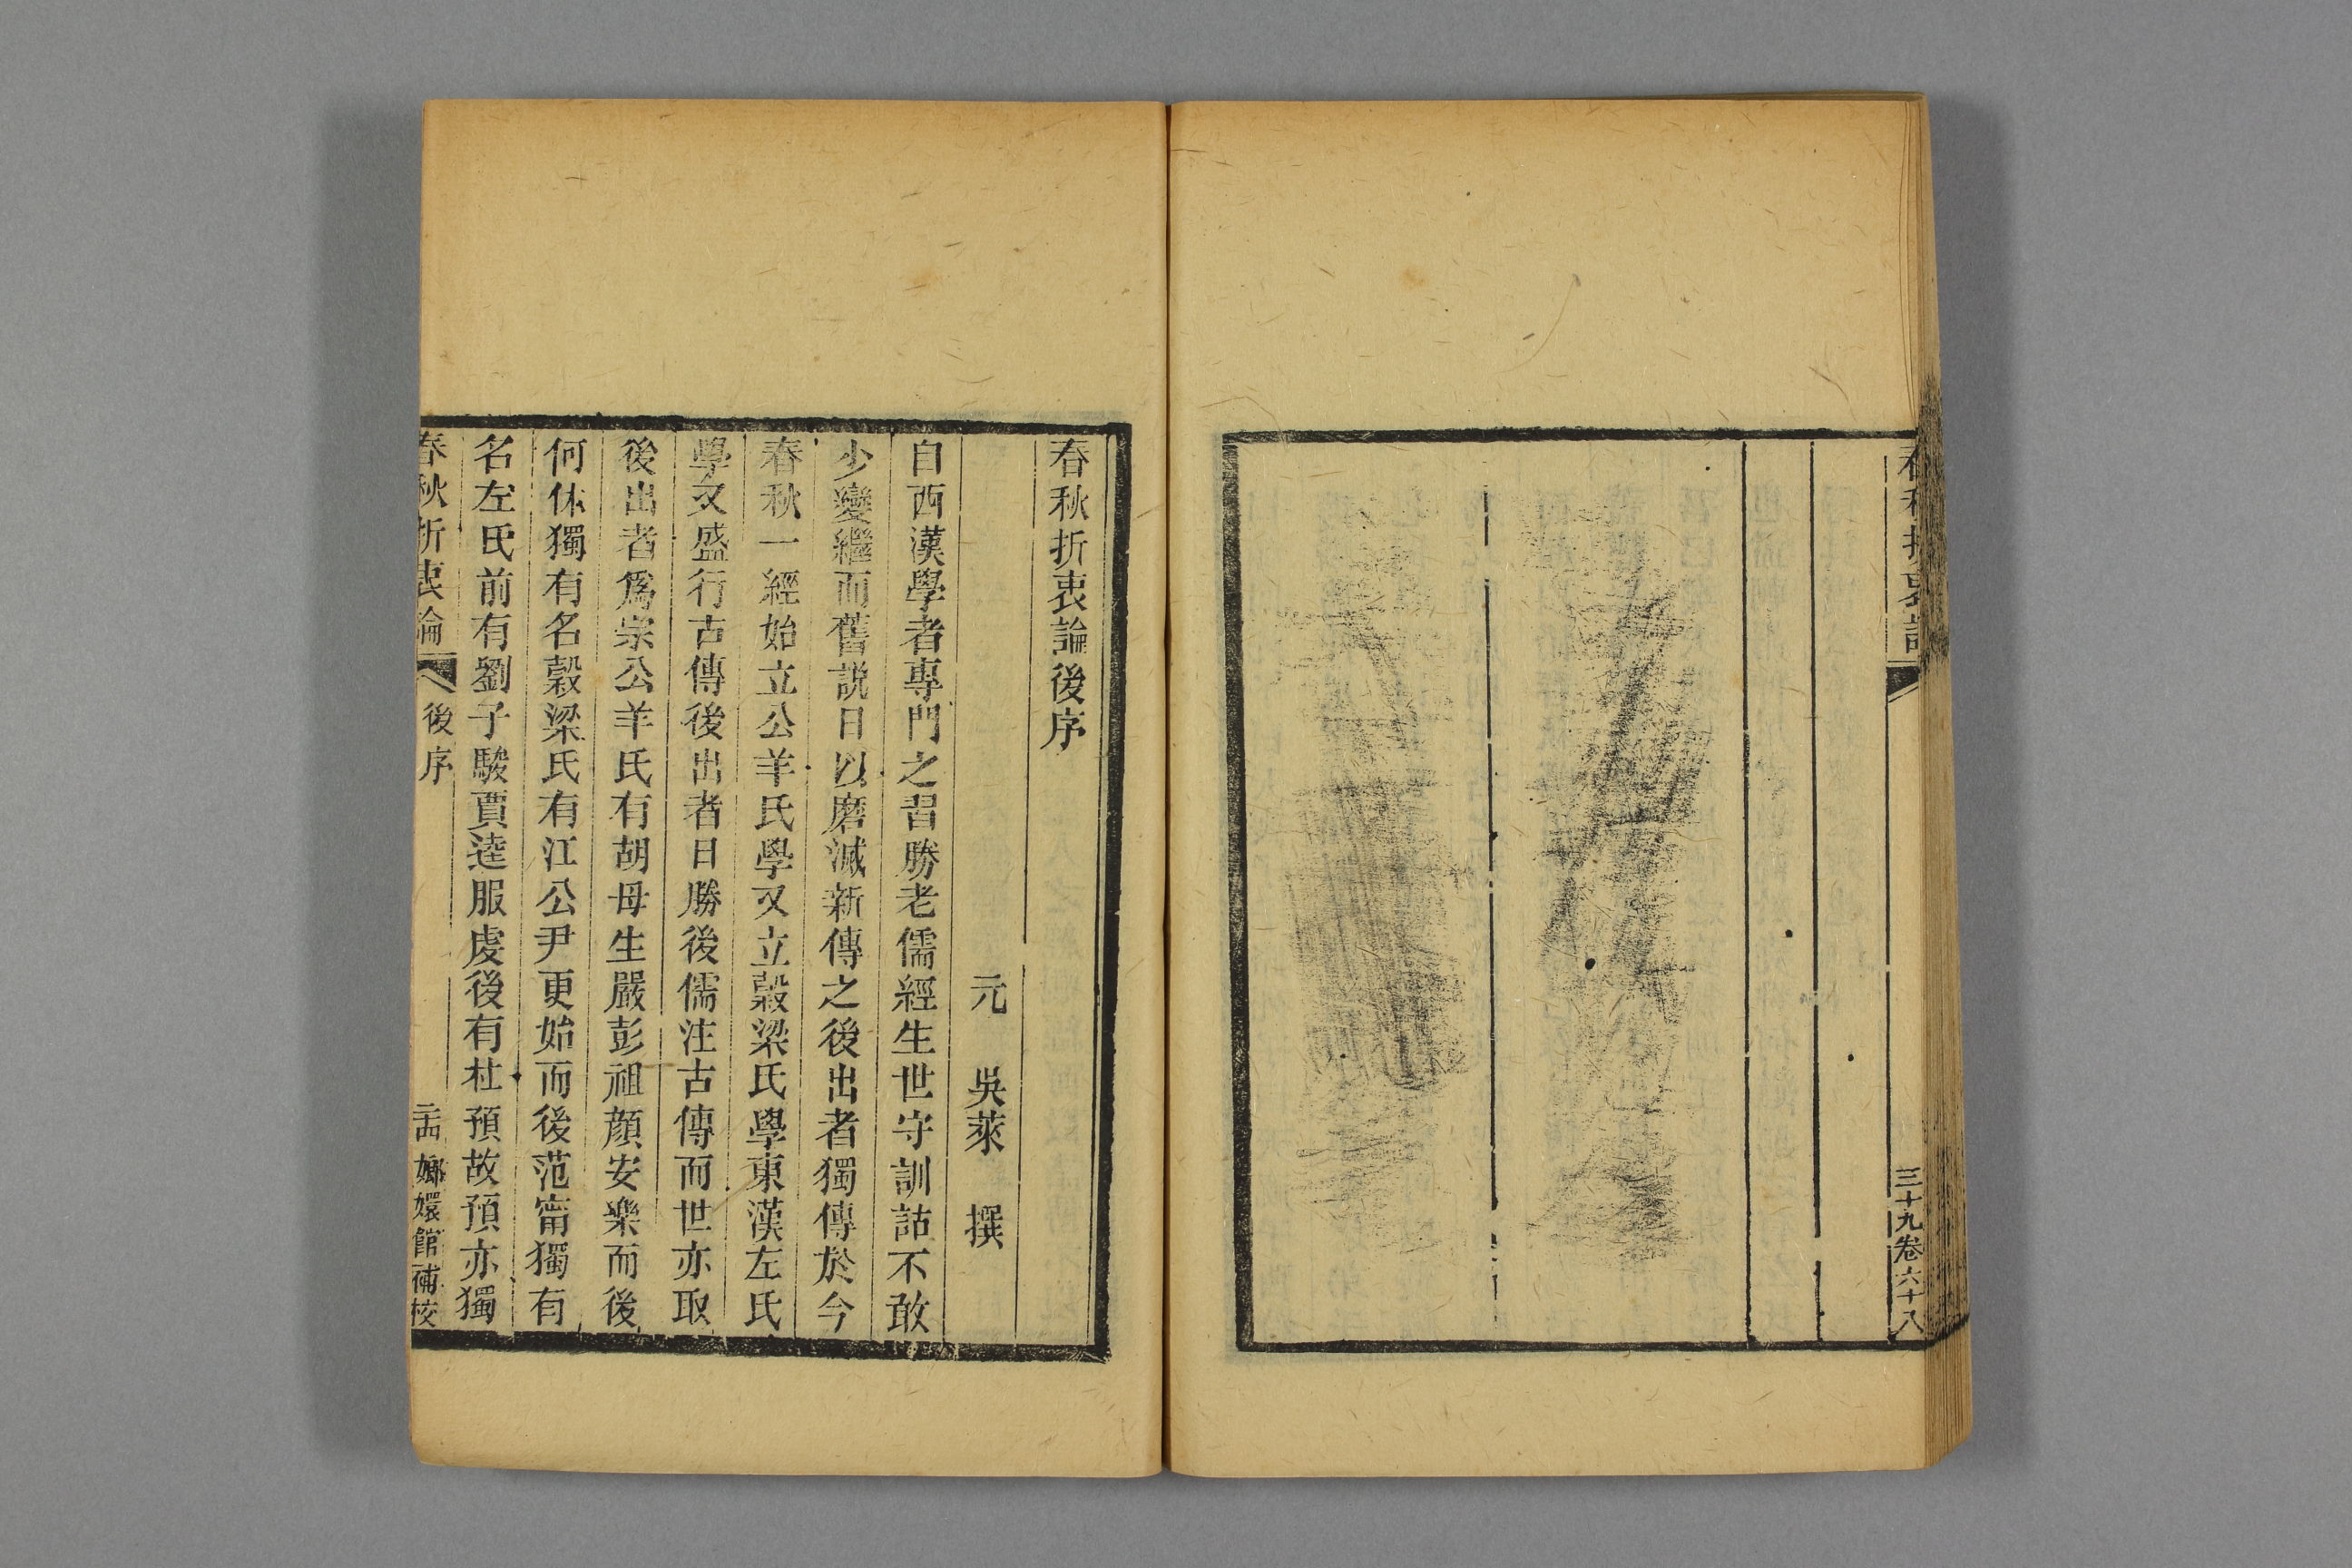 三十九卷六十八
春秋折衷論後序
元 吳萊 撰
自西漢學者專門之習勝老儒經生世守訓詁不敢
少變繼而舊説日以磨滅新傳之後出者獨傳於今
春秋一經始立公羊氏學又立穀梁氏學東漢左氏
學又盛行古傳後出者日勝後儒注古傳而世亦取
後出者爲宗公羊氏有胡母生嚴彭祖顔安樂而後
何休獨有名穀梁氏有江公尹更始而後范甯獨有
名左氏前有劉子駿賈逵服虔後有杜預故預亦獨
春秋折衷論 後序 嫏嬛館補校